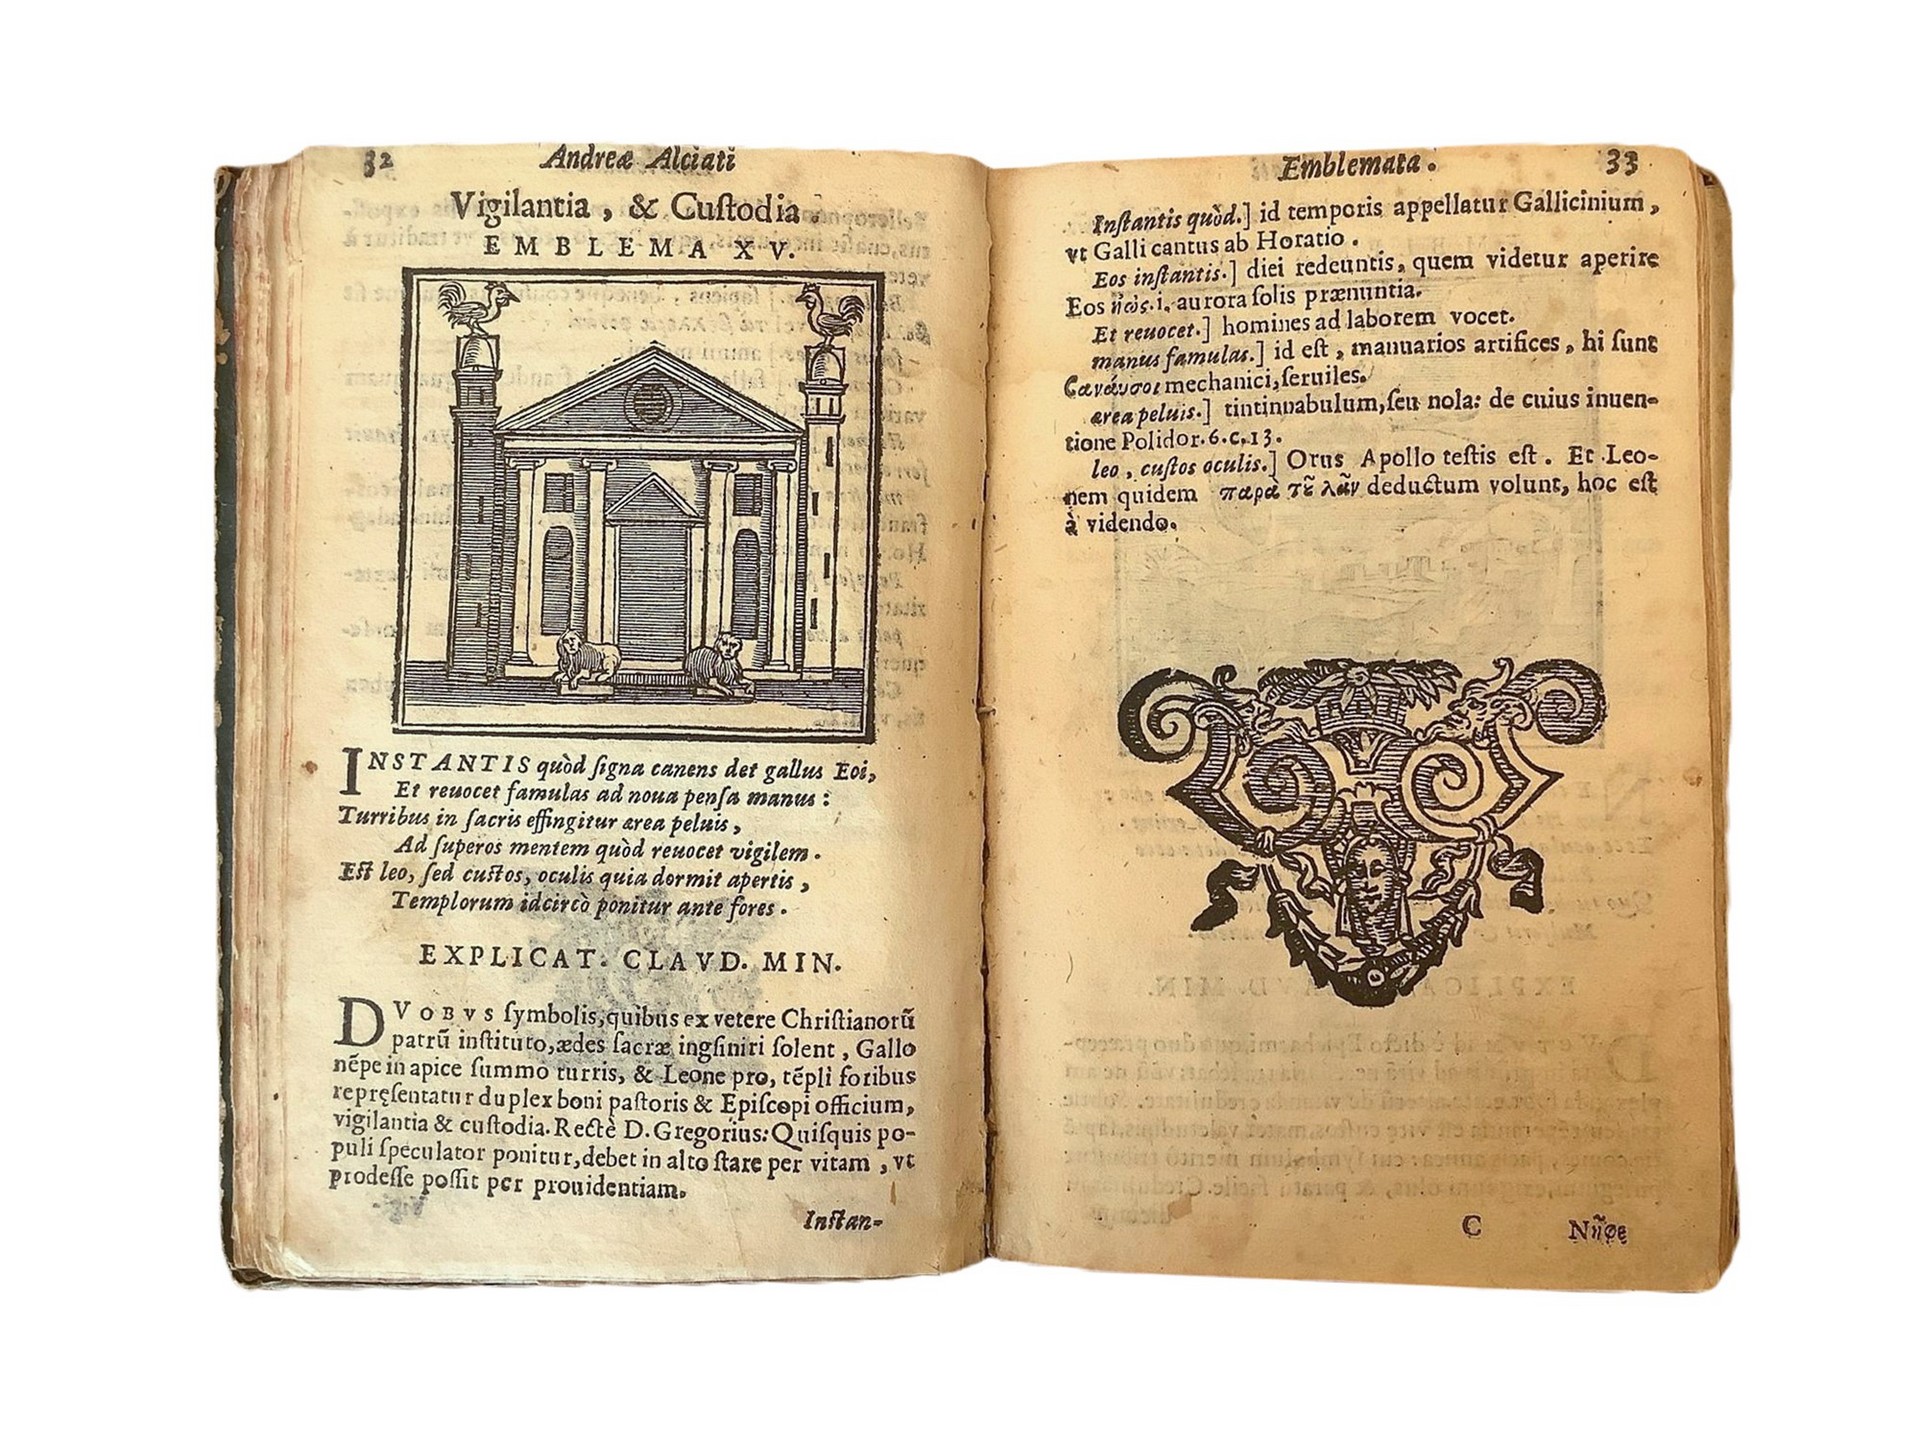 32 Andreæ Alciati
Vigilantia, & Cuſtodia.
EMBLEMA XV.
INSTANTIS quòd ſigna canens det gallus Eoi,
Et reuocet famulas ad noua penſa manus:
Turribus in ſacris effingitur ærea peluis,
Ad ſuperos mentem quòd reuocet vigilem.
Eſt leo, ſed cuſtos, oculis quia dormit apertis,
Templorum idcircò ponitur ante fores.
EXPLICAT. CLAVD. MIN.
DVOBVS ſymbolis, quibus ex vetere Chriſtianorũ
patrũ inſtituto, ædes ſacræ ingſiniri ſolent, Gallo
nẽpe in apice ſummo turris, & Leone pro, tẽpli foribus
repręſentatur duplex boni paſtoris & Epiſcopi officium,
vigilantia & cuſtodia. Rectè D. Gregorius: Quiſquis po-
puli ſpeculator ponitur, debet in alto ſtare per vitam, vt
prodeſſe poſſit per prouidentiam.
Inſtan-
Emblemata. 33
Inſtantis quòd.] id temporis appellatur Gallicinium,
vt Galli cantus ab Horatio.
Eos inſtantis.] diei redeuntis, quem videtur aperire
Eos ἠώς. i. aurora ſolis prænuntia.
Et reuocet.] homines ad laborem vocet.
manus famulas.] id eſt, manuarios artifices, hi ſunt
ϐανάυσοι mechanici, ſeruiles.
ærea peluis.] tintinnabulum, ſeu nola: de cuius inuen-
tione Polidor. 6. c. 13.
leo, cuſtos oculis.] Orus Apollo teſtis eſt. Et Leo-
nem quidem παρὰ τῦ λᾶν deductum volunt, hoc eſt
à videndo.
C Νῆφε